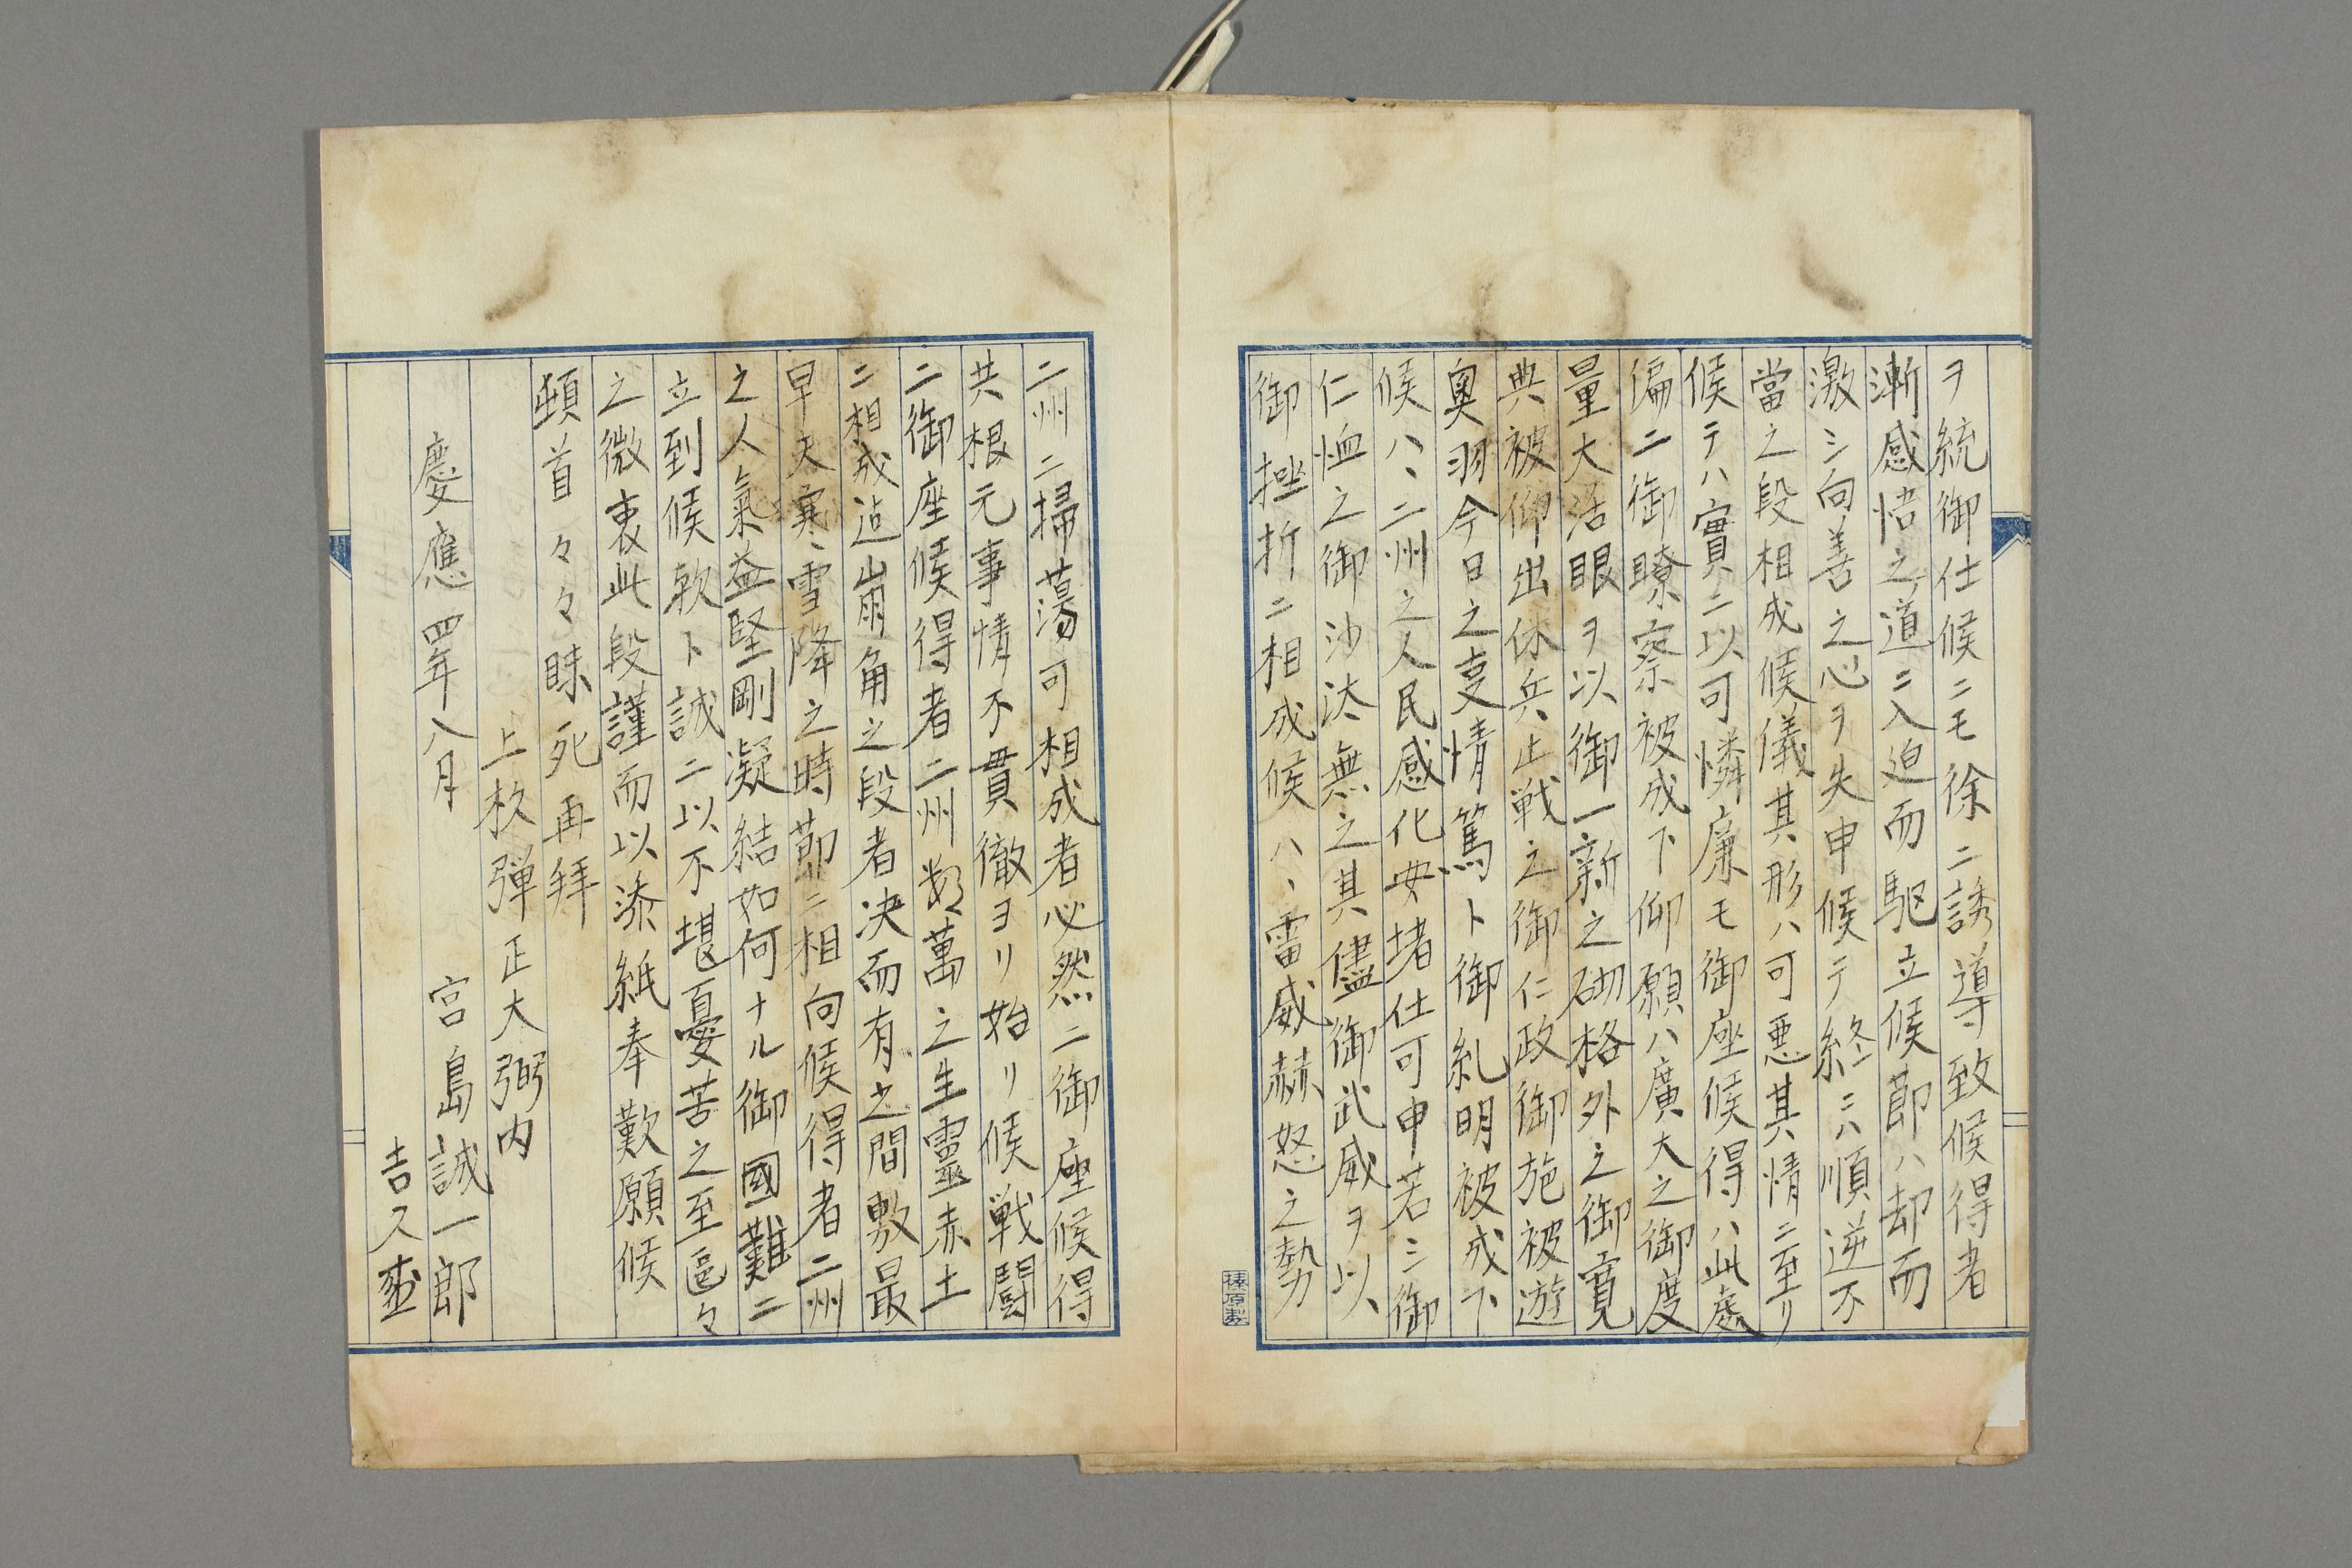 ヲ統御仕候ニモ徐ニ誘導致候得者
漸感悟之道ニ入迫而駆立候節ハ却而
激シ向善之心ヲ失申候テ終ニハ順逆不
當之段相成候儀其形ハ可悪其情ニ至リ
候テハ實ニ以可憐廉モ御座候得ハ此處
偏ニ御瞭察被成下仰願ハ廣大之御度
量大活眼ヲ以御一新之砌格外之御寛
典被仰出休兵止戦之御仁政御施被遊
奥羽今日之事情篤ト御糺明被成下
候ハヽ二州之人民感化安堵仕可申若シ御
仁恤之御沙汰無之其儘御武威ヲ以
御挫折ニ相成候ハヽ雷威赫怒之勢
二州ニ掃蕩可相成者必然ニ御座候得
共根元事情不貫徹ヨリ始リ候戦闘
ニ御座候得者二州数萬之生靈赤土
ニ相成迠崩角之段者决而有之間敷最
早天寒雪降之時節ニ相向候得者二州
之人氣益堅剛凝結如何ナル御國難ニ
立到候歟ト誠ニ以不堪憂苦之至區々
之微衷此段謹而以添紙奉歎願候
頓首々々昧死再拜
上杉弾正大弼内
慶應四年八月
宮島誠一郎
吉久
榛原製